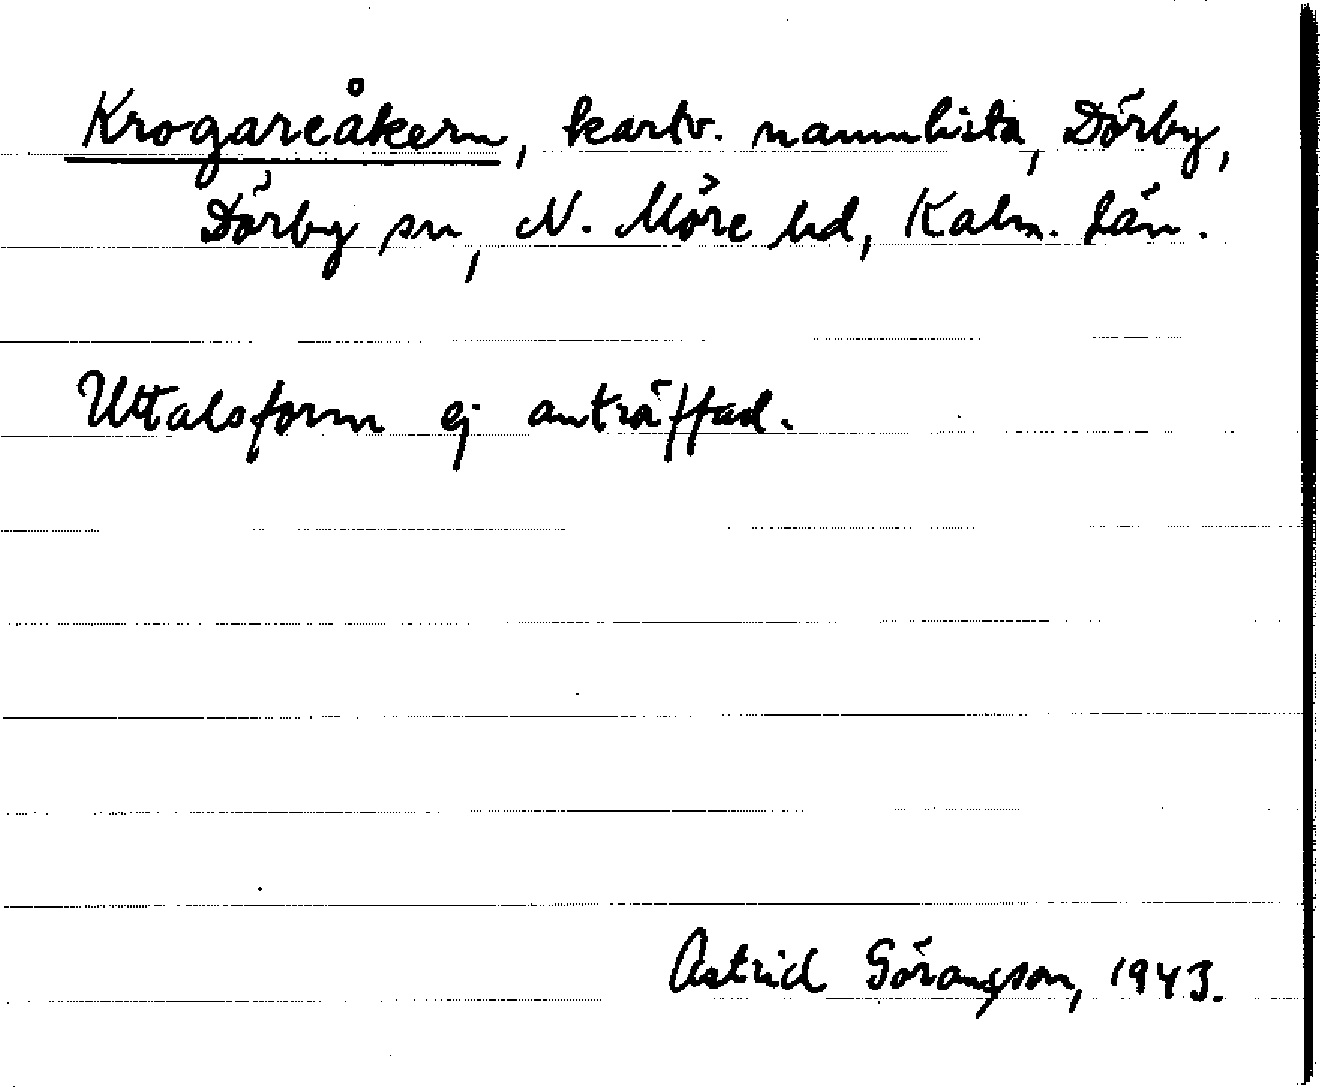 Krogareåkern, kartv. namnlista, Dörby,
Dörby sn, N. Möre hd, Kalm. län.
Uttalsform ej anträffad.
Astrid Göransson, 1943.